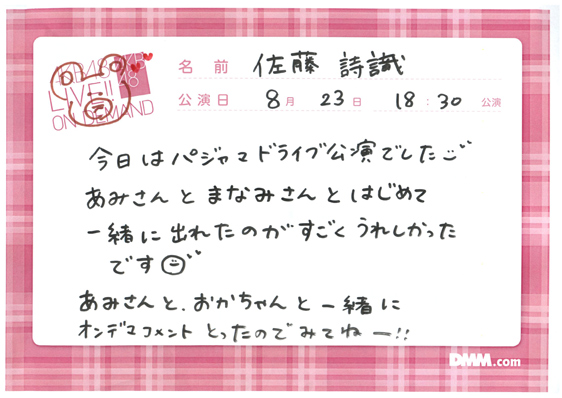 AKB48
LIVE!!
ON DEMAND
名前 佐藤 詩識
公演日 8月 23日 18:30 公演
今日はパジャマドライブ公演でした
あみさんとまなみさんとはじめて
一緒に出れたのがすごくうれしかった
です
あみさんと、おかちゃんと一緒に
オンデマコメントとったのでみてねー!!
DMM.com